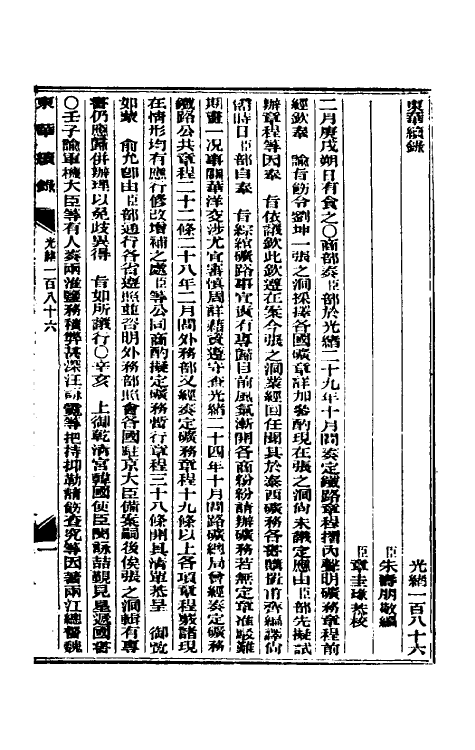 東華續錄
光緒一百八十六
臣朱壽朋敬編
臣章圭瑑恭校
二月庚戌朔日有食之〇商部奏臣部於光緒二十九年十月間奏定鐵路章程摺內聲明礦務章程前
經欽奉　諭旨飭令劉坤一張之洞採擇各國礦章詳加參酌現在張之洞尚未議定應由臣部先擬試
辦章程等因奉　旨依議欽此欽遵在案今張之洞業經回任聞其於泰西礦務各書購取甫齊編譯尚
需時日臣部自奉　旨綜綰礦路事宜責有專歸目前風氣漸開各商紛紛請辦礦務若無定章准駁難
期畫一况事關華洋交涉尤宜審慎周詳藉資遵守查光緒二十四年十月間路礦總局曾經奏定礦務
鐵路公共章程二十二條二十八年二月間外務部又經奏定礦務章程十九條以上各項章程覈諸現
在情形均有應行修改增補之處臣等公同商酌擬定礦務暫行章程三十八條開具清單恭呈　御覽
如蒙　俞允卽由臣部通行各省遵照並咨明外務部照會各國駐京大臣備案嗣後俟張之洞輯有專
書仍應歸併辦理以免歧異得　旨如所議行〇辛亥　上御乾清宮韓國使臣閔詠喆覲見呈遞國書
〇壬子諭軍機大臣等有人奏兩淮鹽務積弊甚深汪詠霓等把持抑勒請飭查究等因著兩江總督魏
東華續錄　光緒一百八十六　一